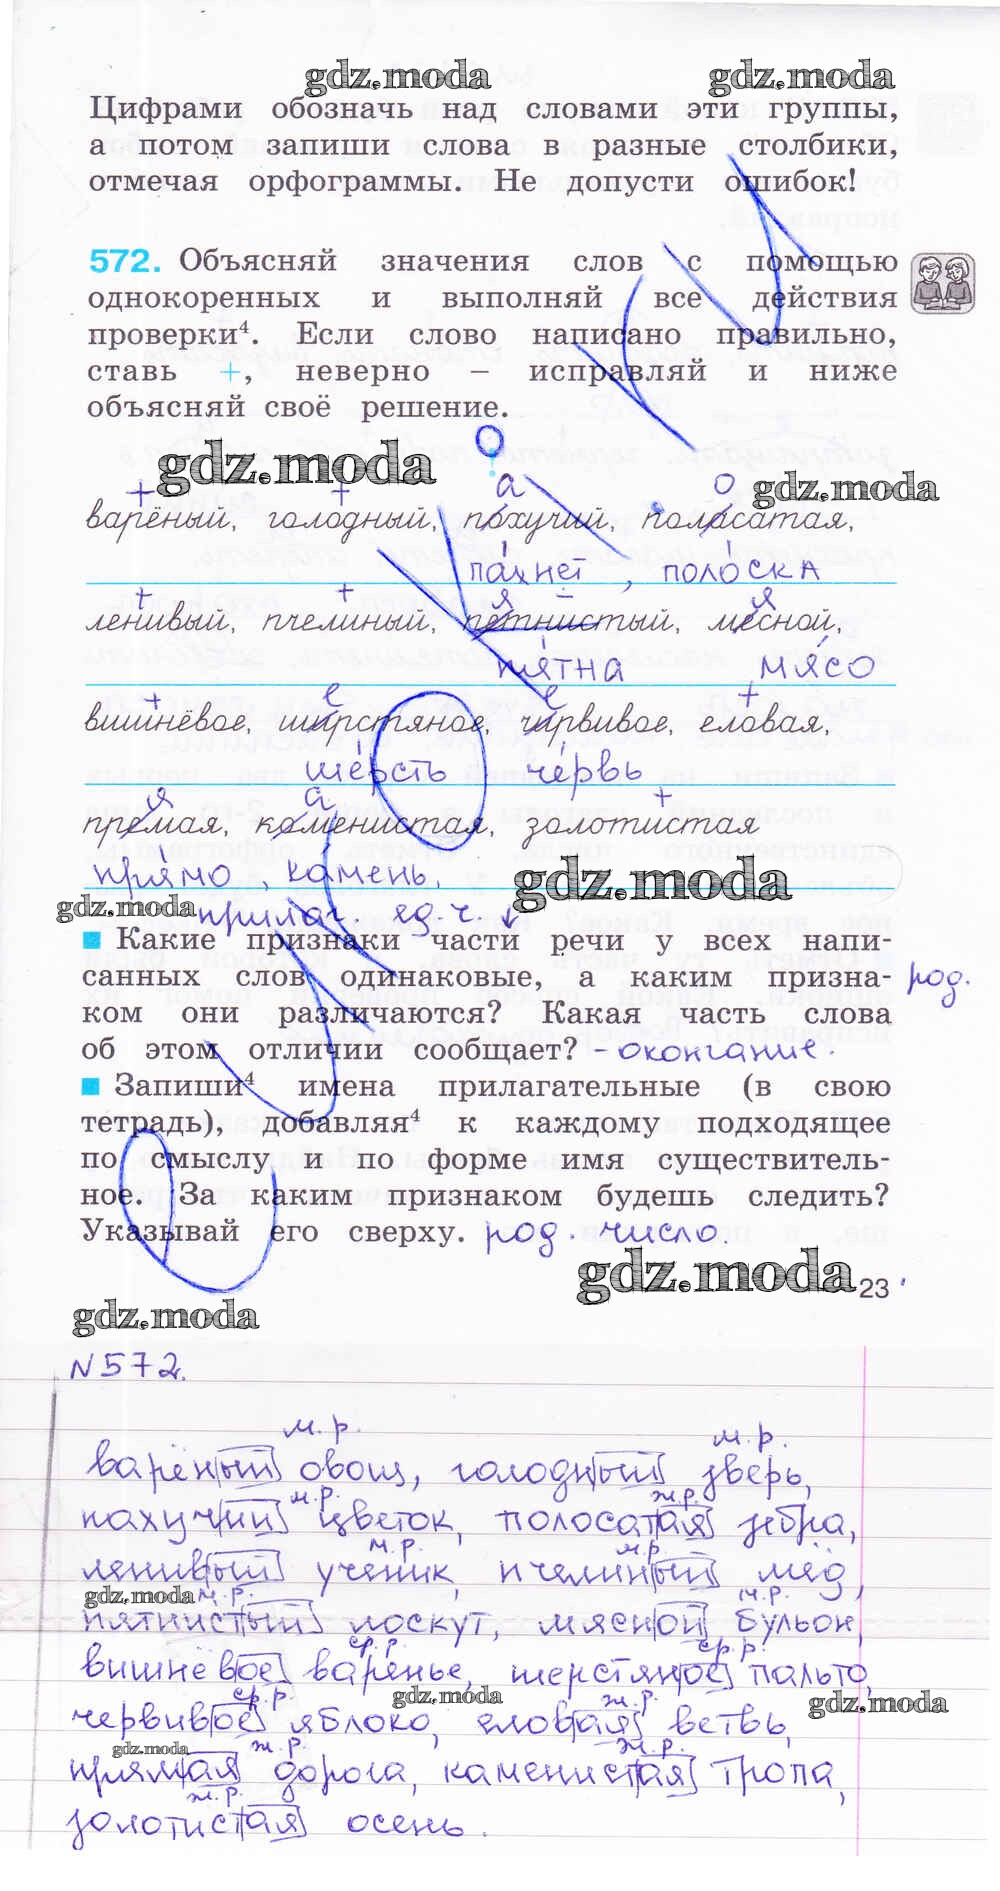 gdz.moda gdz.moda
Цифрами обозначь над словами эти группы,
а потом запиши слова в разные столбики,
отмечая орфограммы. Не допусти ошибок!
572. Объясняй значения слов с помощью
однокоренных и выполняй все действия
проверки⁴. Если слово написано правильно,
ставь +, неверно – исправляй и ниже
объясняй своё решение.
gdz.moda ? gdz.moda
+ + а о
варёный, голодный, похучий, поласатая,
пахнет, полоска
+ + я я
ленивый, пчелиный, петнистый, месной,
пятна мясо
+ е е +
вишнёвое, ширстяное, чирвивое, еловая,
шерсть червь
я а +
премая, коменистая, золотистая
прямо, камень.
gdz.moda
gdz.moda прилаг. ед ч ↓
Какие признаки части речи у всех напи-
санных слов одинаковые, а каким призна- род.
ком они различаются? Какая часть слова
об этом отличии сообщает? - окончание.
Запиши⁴ имена прилагательные (в свою
тетрадь), добавляя⁴ к каждому подходящее
по смыслу и по форме имя существитель-
ное. За каким признаком будешь следить?
Указывай его сверху. род. число.
gdz.moda 23
gdz.moda
N 572.
м.р. м.р.
варёный овощ, голодный зверь,
м.р. ж.р.
пахучий цветок, полосатая зебра,
м.р. м.р.
ленивый ученик, пчелиный мёд,
gdz.moda м.р. м.р.
пятнистый лоскут, мясной бульон,
ср.р. ср.р.
вишнёвое варенье, шерстяное пальто,
ср.р. gdz.moda ж.р. gdz.moda
червивое яблоко, еловая ветвь,
gdz.moda ж.р. ж.р.
прямая дорога, каменистая тропа,
ж.р.
золотистая осень.